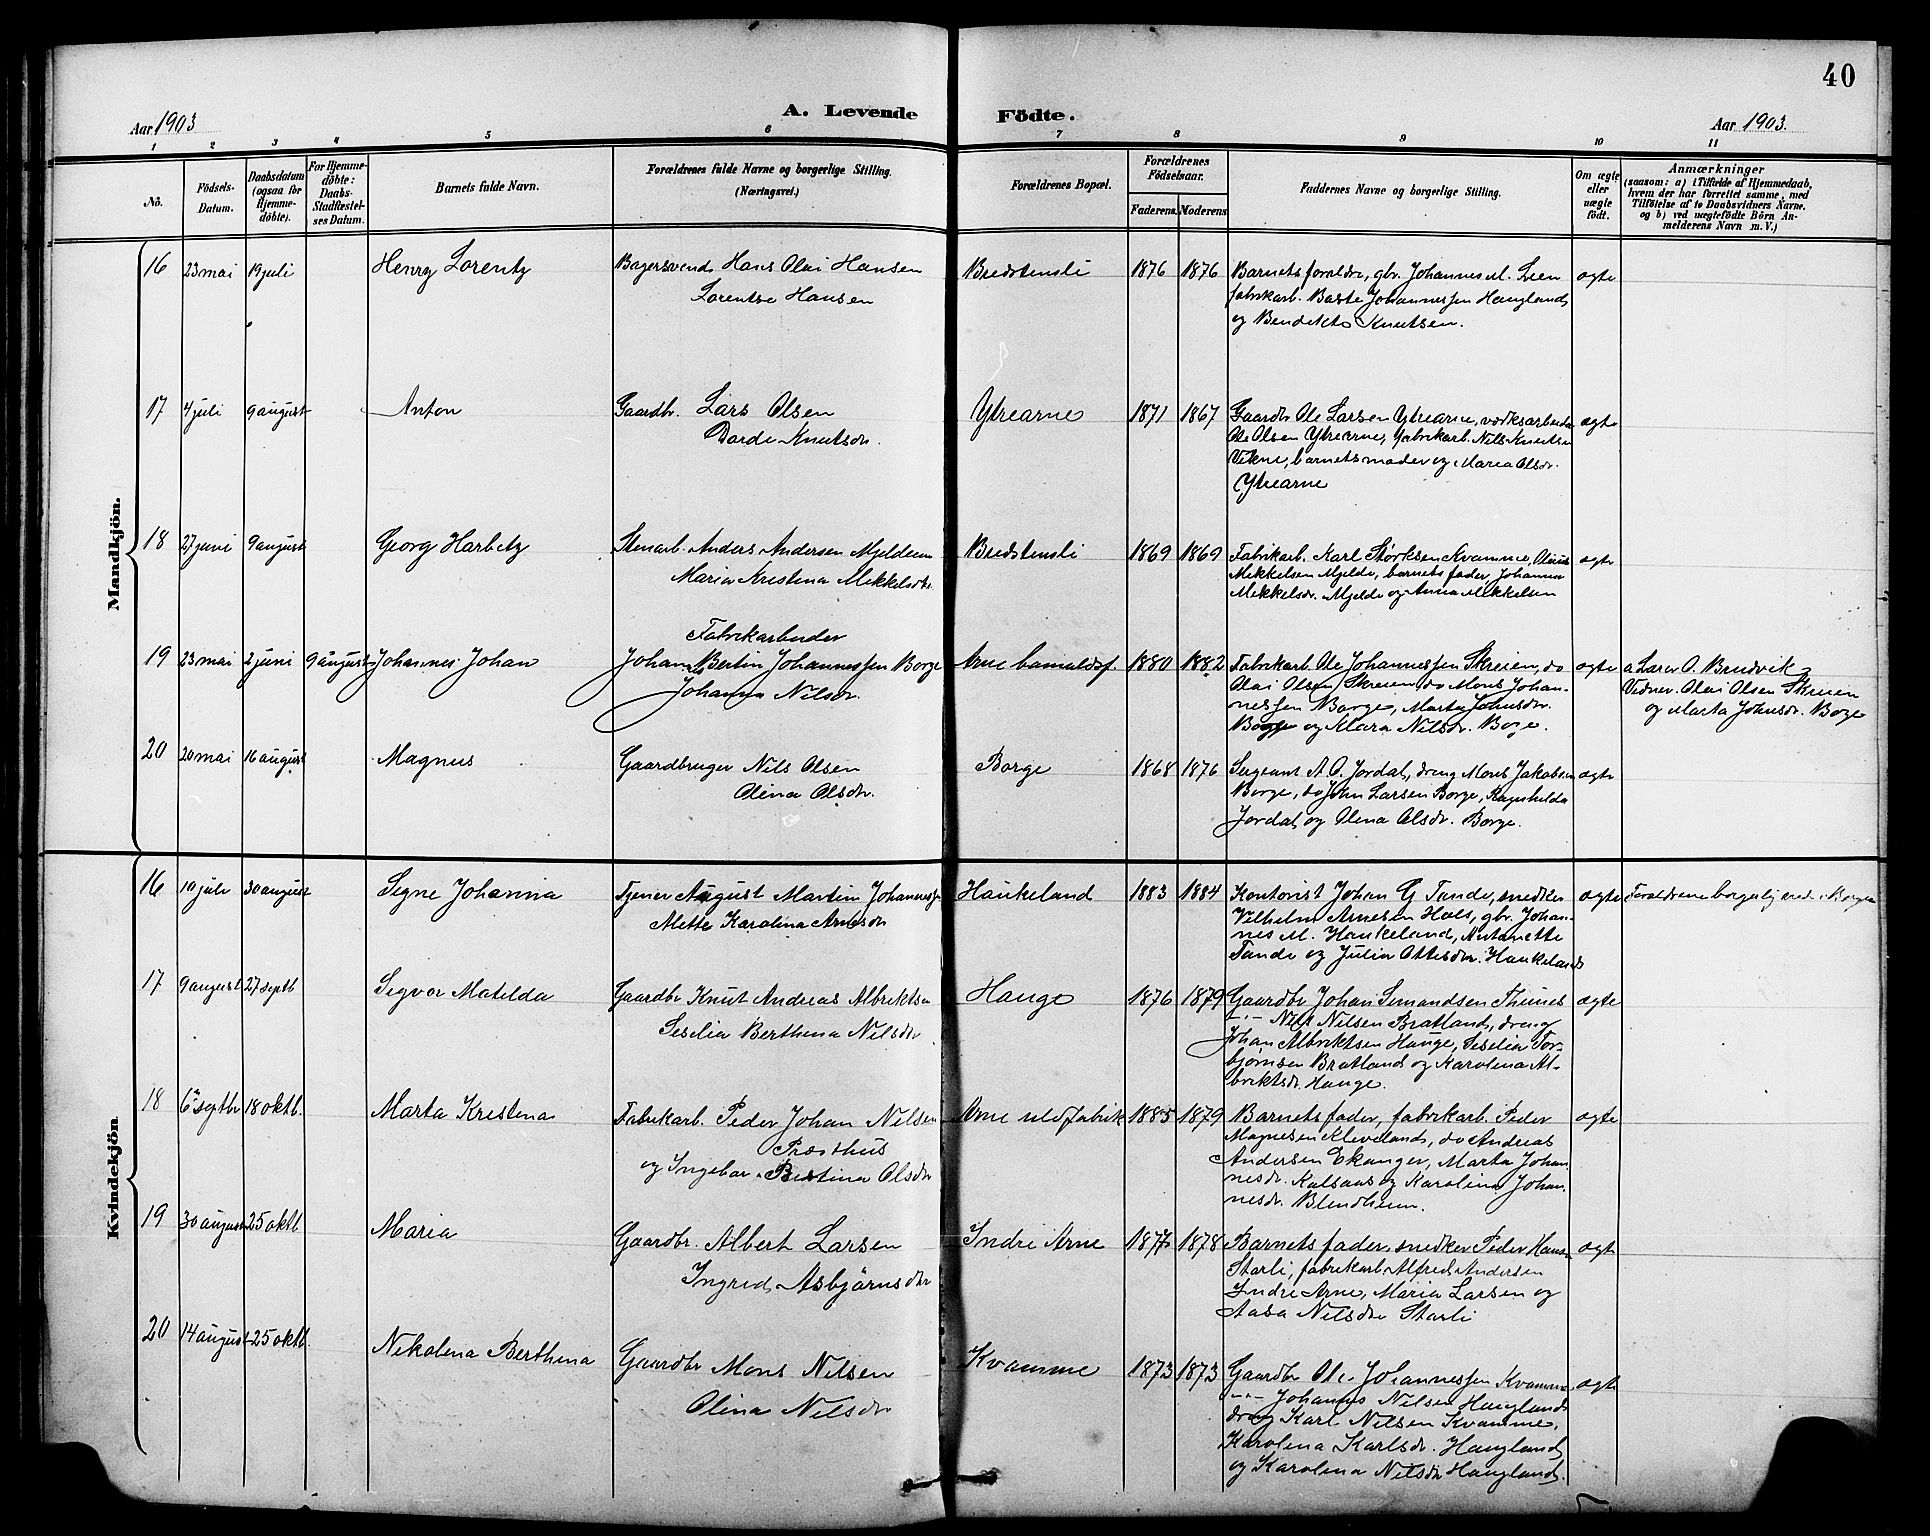 40
Aar 1903
A. Levende Födte.
Aar 1903.
1 2 3 4 5 6 7 8 9 10 11
No.
Födsels-
Datum.
Daabsdatum
(ogsaa for
Hjemme-
döbte).
For Hjemme-
döbte:
Daabs-
Stadfæstel-
ses Datum.
Barnets fulde Navn.
Forældrenes fulde Navne og borgerlige Stilling.
(Næringsvei.)
Forældrenes Bopæl.
Forældrenes
Födselsaar.
Faderens. Moderens
Faddernes Navne og borgerlige Stilling.
Om ægte
eller
uægte
födt.
Anmærkninger
(saasom: a) i Tilfælde af Hjemmedaab,
hvem der har forrettet samme, med
Tilföielse af to Daabsvidners Navne.
og b) ved uægtefödte Börn An-
melderens Navn m. V.)
Mandkjön.
16 23 mai 19 juli Henry Lorentz
Bagersvend Hans Olai Hansen
Lorentse Hansen
Bredstensli 1876 1876
Barnets foreldre, gbr. Johannes M. Lien
fabrikarb. Baste Johannessen Haugland
og Bendikte Knutsen.
ægte
17 4 juli 9 august Anton
Gaardbr. Lars Olsen
Barde Knutsdr.
Ytrearne 1871 1867
Gaardbr Ole Larsen Ytrearne, verksarbeider
Ole Olsen Ytrearne, fabrikarb. Nils Knutsen
Vikne, barnets moder og Maria Olsdr.
Ytrearne
ægte
18 27 juni 9 august Georg Harbitz
Stenarb. Anders Andersen Mjeldeim
Maria Kristina Mikkelsdtr.
Bredstensli 1869 1869
Fabrikarb. Karl Størksen Kvamme, Olaius
Mikkelsen Mjelde, barnets fader, Johanna
Mikkelsdr. Mjelde og Anna Mikkelsen
ægte
19 23 mai 2 juni 9 august Johannes Johan
Fabrikarbeider
Johan Bertin Johannessen Borge
Johanna Nilsdr.
Arne bomuldsf. 1880 1882
Fabrikarb. Ole Johannessen Skreien, do
Olai Olsen Skreien, do Mons Johan-
nessen Borge, Marta Johnsdr.
Borge og Mara Nilsdr. Borge.
ægte
a Lærer O. Bredvik
Vidner. Olai Olsen Skreien
og Marta Johnsdr. Borge
20 20 mai 16 august Magnus
Gaardbruger Nils Olsen
Olina Olsdr.
Borge 1868 1876
Sergeant A. O. Jordal, dreng Mons Jakobsen
Borge, do John Larsen Borge, Ragnhilda
Jordal, og Olena Olsdr. Borge.
ægte
Kvindekjön
16 10 juli 30 august Signe Johanna
Tjener August Martin Johannessen
Mette Karolina Arnesdr
Haukeland 1883 1884
Kontorist Johan G Tande, snedker
Vilhelm Arnesen Hols, gbr. Johan-
nes M. Haukeland, Antonette
Tande og Julia Ottesdr. Haukeland
ægte
Foreldrene borgerlig viede i Bergen
17 9 august 27 septb Sigvor Matilda
Gaardbr Knut Andreas Albriktsen
Sesilia Berthina Nilsdr
Hauge 1876 1879
Gaardbr Johan Simandsen Thunes
-"- Nils Nilsen Bratland, dreng
Johan Albriktsen Hauge, Sesilia Tor-
bjørnsen Bratland og Karolina Al-
briktsdr. Hauge.
ægte
18 6 septbr 18 oktb. Marta Kristina
Fabrikarb. Peder Johan Nilsen
Præsthus
og Ingebor. Bertina Olsdr
Arne uldfabrik 1885 1879
Barnets fader, fabrikarb. Peder
Magnesen Kleveland, do Andreas
Andersen Ekanger, Marta Johan
nesdr. Kalsaas og Karolina Johan.
nesdr. Blindheim.
ægte
19 30 august 25 oktb. Maria
Gaardbr. Albert Larsen
Ingrid Asbjørnsdtr
Indre Arne 1877 1878
Barnets fader, snedker Peder Hansen
Starli, fabrikarb. Alfred Andersen
Indre Arne, Maria Larsen og
Aasa Nilsdr Starli
ægte
20 14 august 25 oktb. Nikolina Berthina
Gaardbr Mons Nilsen
Olina Nilsdr
Kvamme 1873 1873
Gaardbr Ole Johannessen Kvamme
-"- Johannes Nilsen Haugland
dreng Karl Nilsen Kvamme,
Karolina Karlsdr. Haugland,
og Karolina Nilsdr Haugland.
ægte